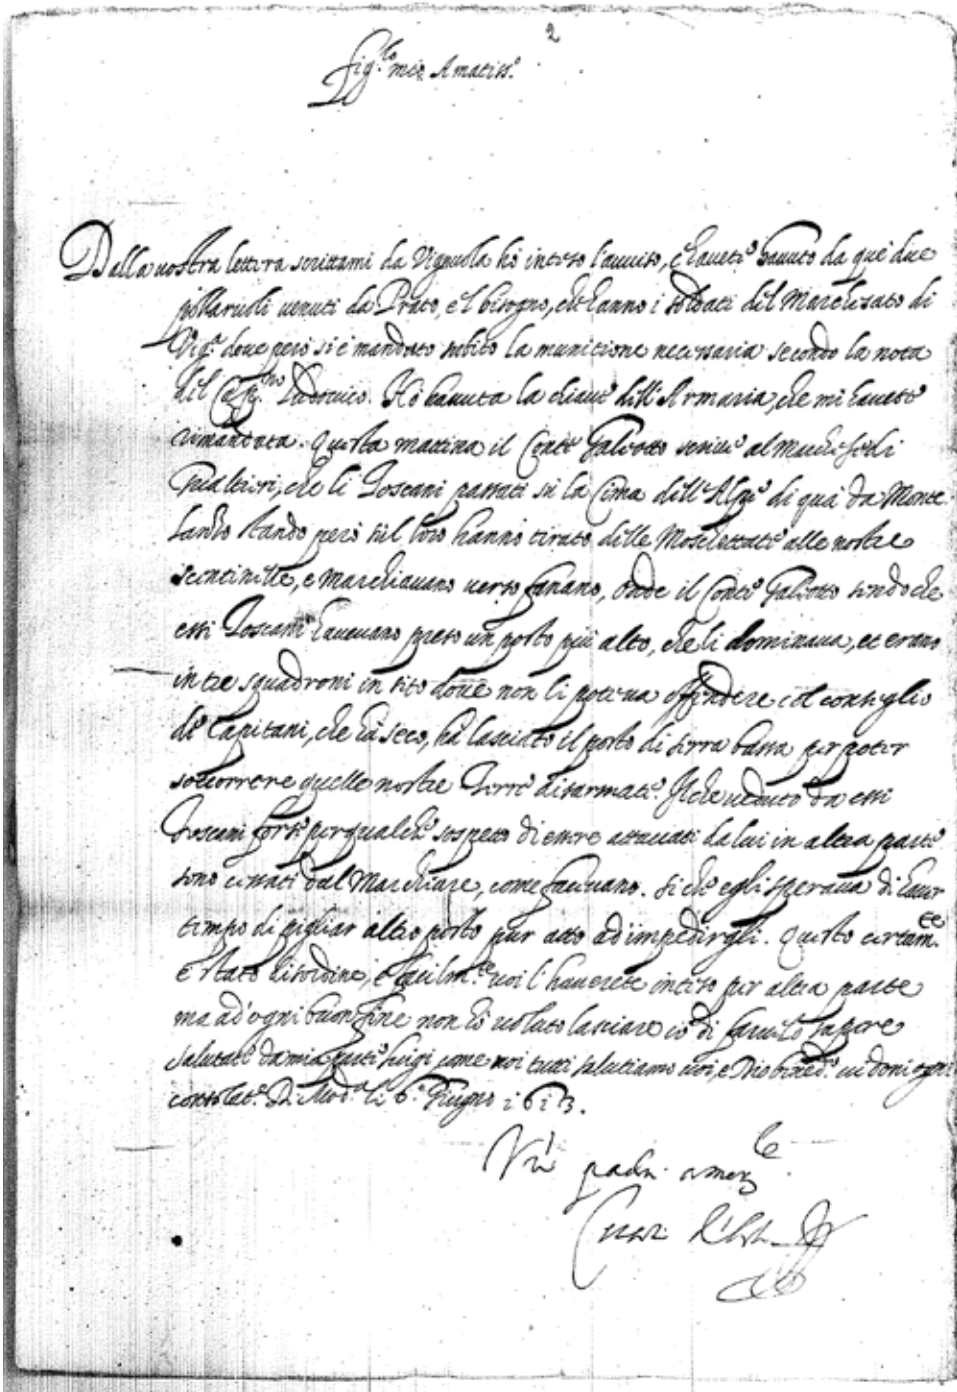 2
fig.lo mio Amatiss.o
Dalla vostra lettera scrittami da Vignuola hò inteso l'auuiso, c'hauete hauuto da que' due
pollaruoli uenuti da Prato, e'l bisogno, che hanno i soldati del Marchesato di
Vig.a doue però si è mandato subito la munitione necessaria secondo la nota
del Lodouico. Hò hauuta la chiaue dell'Armaria, che mi hauete
rimandata. Questa mattina il Conte Galeotto scriue al
Gualtieri, che li Toscani passati sù la Cima dell'Alpe di quà da Monte
stando però sul loro hanno tirato delle Moschettate alle nostre
sentinelle, e marchiauano uerso fanano, onde il Conte Galeotto uedendo che
essi Toscani haueuano preso un posto più alto, che li dominaua, et erano
in tre squadroni in sito doue non li poteua offendere col consiglio
de Capitani, che hà seco, hà lasciato il posto di serra bassa per poter
soccorrere quelle nostre Terre disarmate. Il che ueduto da essi
Toscani forse per qualche sospetto di essere attaccati da lui in altra parte
sono cessati dal Marchiare, come faceuano. Si che egli speraua di hauer
tempo di pigliar altro posto pur atto ad impedirgli. Questo certam.te
è stato disordine, e facilm.te uoi l'hauerete inteso per altra parte
ma ad ogni buon fine non hò uoluto lasciare io di faruelo sapere
Salutate da mia parte luigi come noi tutti salutiamo uoi, e Dio bened.o ui doni ogni
consolat.e Di Mod.a li 6. Giugno 1613.
Vro padre amor.le
Cesare d'Este